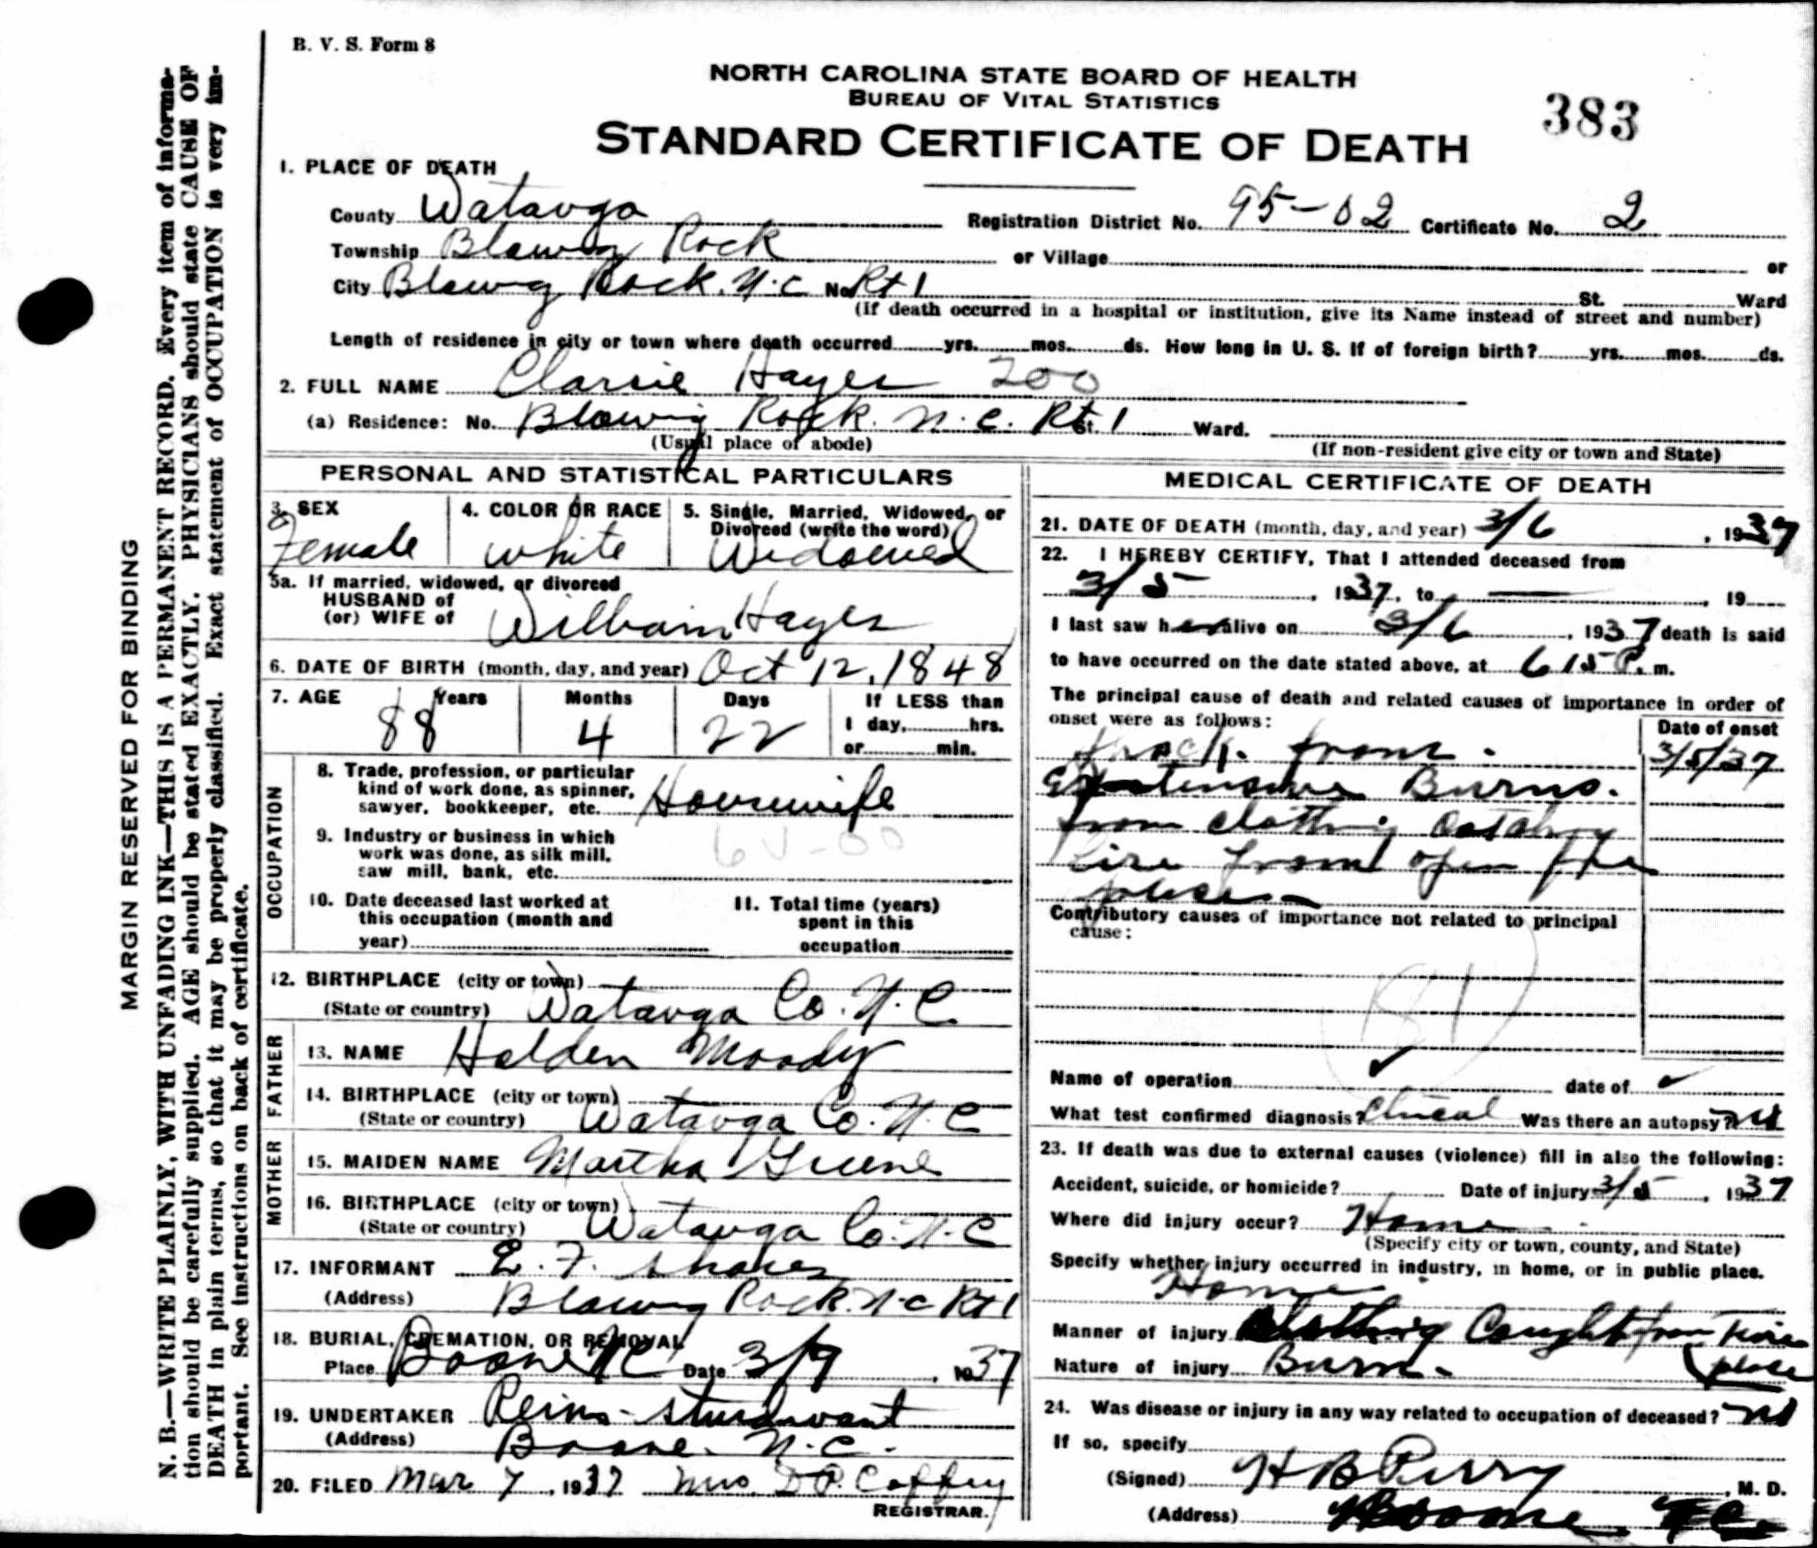 B. V. S. Form 8
NORTH CAROLINA STATE BOARD OF HEALTH
BUREAU OF VITAL STATISTICS
STANDARD CERTIFICATE OF DEATH
383
1. PLACE OF DEATH
County Watauga Registration District No. 95-02 Certificate No. 2
Township Blowing Rock or Village or
City Blowing Rock. N.C No. Rt 1 St. Ward
(If death occurred in a hospital or institution, give its Name instead of street and number)
Length of residence in city or town where death occurred yrs. mos. ds. How long in U. S. if of foreign birth? yrs. mos. ds.
2. FULL NAME Hayes 200
(a) Residence: No. Blowing Rock. N. C. Rt. 1 St. Ward.
(Usual place of abode) (If non-resident give city or town and State)
PERSONAL AND STATISTICAL PARTICULARS
3. SEX 4. COLOR OR RACE 5. Single, Married, Widowed, or Divorced (write the word)
Female white Widowed
5a. If married, widowed, or divorced
HUSBAND of
(or) WIFE of William Hayes
6. DATE OF BIRTH (month, day, and year) Oct 12, 1848
7. AGE Years Months Days If LESS than
88 4 22 1 day, hrs.
or min.
OCCUPATION
8. Trade, profession, or particular
kind of work done, as spinner,
sawyer, bookkeeper, etc. Housewife
9. Industry or business in which
work was done, as silk mill,
saw mill, bank, etc.
10. Date deceased last worked at
this occupation (month and
year)
11. Total time (years)
spent in this
occupation
12. BIRTHPLACE (city or town)
(State or country) Watauga Co. N. C
FATHER
13. NAME Holden Moody
14. BIRTHPLACE (city or town)
(State or country) Watauga Co. N. C
MOTHER
15. MAIDEN NAME Martha Greene
16. BIRTHPLACE (city or town)
(State or country) Watauga Co. N. C
17. INFORMANT E. F.
(Address) Blowing Rock. N-C Rt 1
18. BURIAL, CREMATION, OR REMOVAL
Place Boone NC Date 3/9, 1937
19. UNDERTAKER Reins-Sturdivant
(Address) Boone. N. C.
20. FILED Mar 7, 1937 Mrs. D P. Coffey
REGISTRAR.
MEDICAL CERTIFICATE OF DEATH
21. DATE OF DEATH (month, day, and year) 3/6, 1937
22. I HEREBY CERTIFY, That I attended deceased from
3/5, 1937, to , 19
I last saw her alive on 3/6, 1937 death is said
to have occurred on the date stated above, at 6 15 P. m.
The principal cause of death and related causes of importance in order of
onset were as follows:
Date of onset
Shock. from. 3/5/37
Extensive Burns.
from clothing catching
fire from open fire
place
Contributory causes of importance not related to principal
cause:
Name of operation date of
What test confirmed diagnosis? Clinical Was there an autopsy? no
23. If death was due to external causes (violence) fill in also the following:
Accident, suicide, or homicide? Date of injury 3/5, 1937
Where did injury occur? Home
(Specify city or town, county, and State)
Specify whether injury occurred in industry, in home, or in public place.
Home
Manner of injury Clothing Caught from Fire
place
Nature of injury Burn.
24. Was disease or injury in any way related to occupation of deceased? no
If so, specify
(Signed) H B Perry, M. D.
(Address) Boone. N C.
MARGIN RESERVED FOR BINDING
N. B.—WRITE PLAINLY, WITH UNFADING INK—THIS IS A PERMANENT RECORD. Every item of informa-
tion should be carefully supplied. AGE should be stated EXACTLY. PHYSICIANS should state CAUSE OF
DEATH in plain terms, so that it may be properly classified. Exact statement of OCCUPATION is very im-
portant. See instructions on back of certificate.